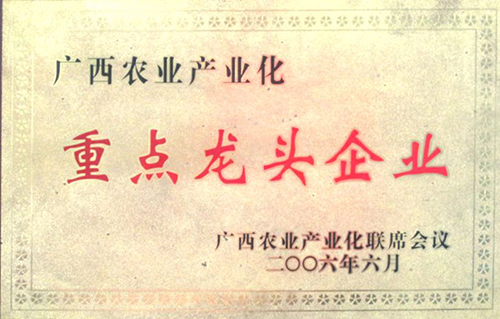 广西农业产业化
重点龙头企业
广西农业产业化联席会议
二〇〇六年六月